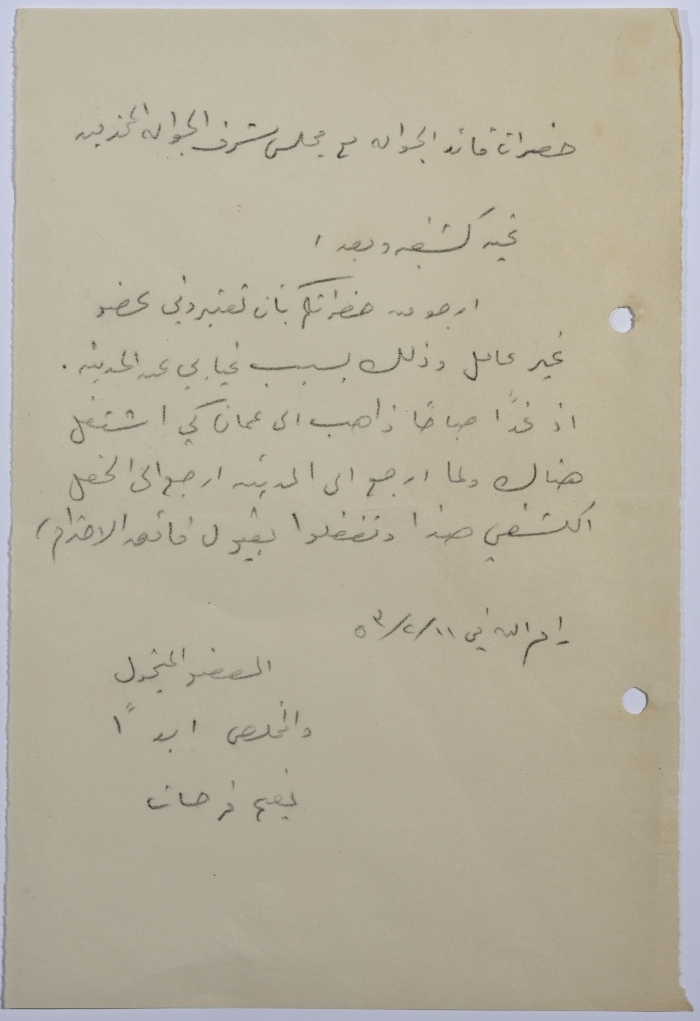 حضرات قائد الجوالة مع مجلس شرف الجوالة المحترمين
تحية كشفية وبعد ،
ارجو من حضراتكم بأن تعتبروني عضو
غير عامل وذلك بسبب غيابي عن المدينة .
اذ غدًا صباحًا ذاهب الى عمان كي اشتغل
هناك ولما ارجع الى المدينة ارجع الى الحقل
الكشفي هذا وتفضلوا بقبول فائق الاحترام ،
رام الله في ١١/٢/٥٣
العضو المتجول
والمخلص ابدًا
فرحات